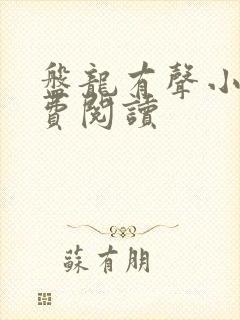 盤龍有聲小
費閱讀
蘇有朋